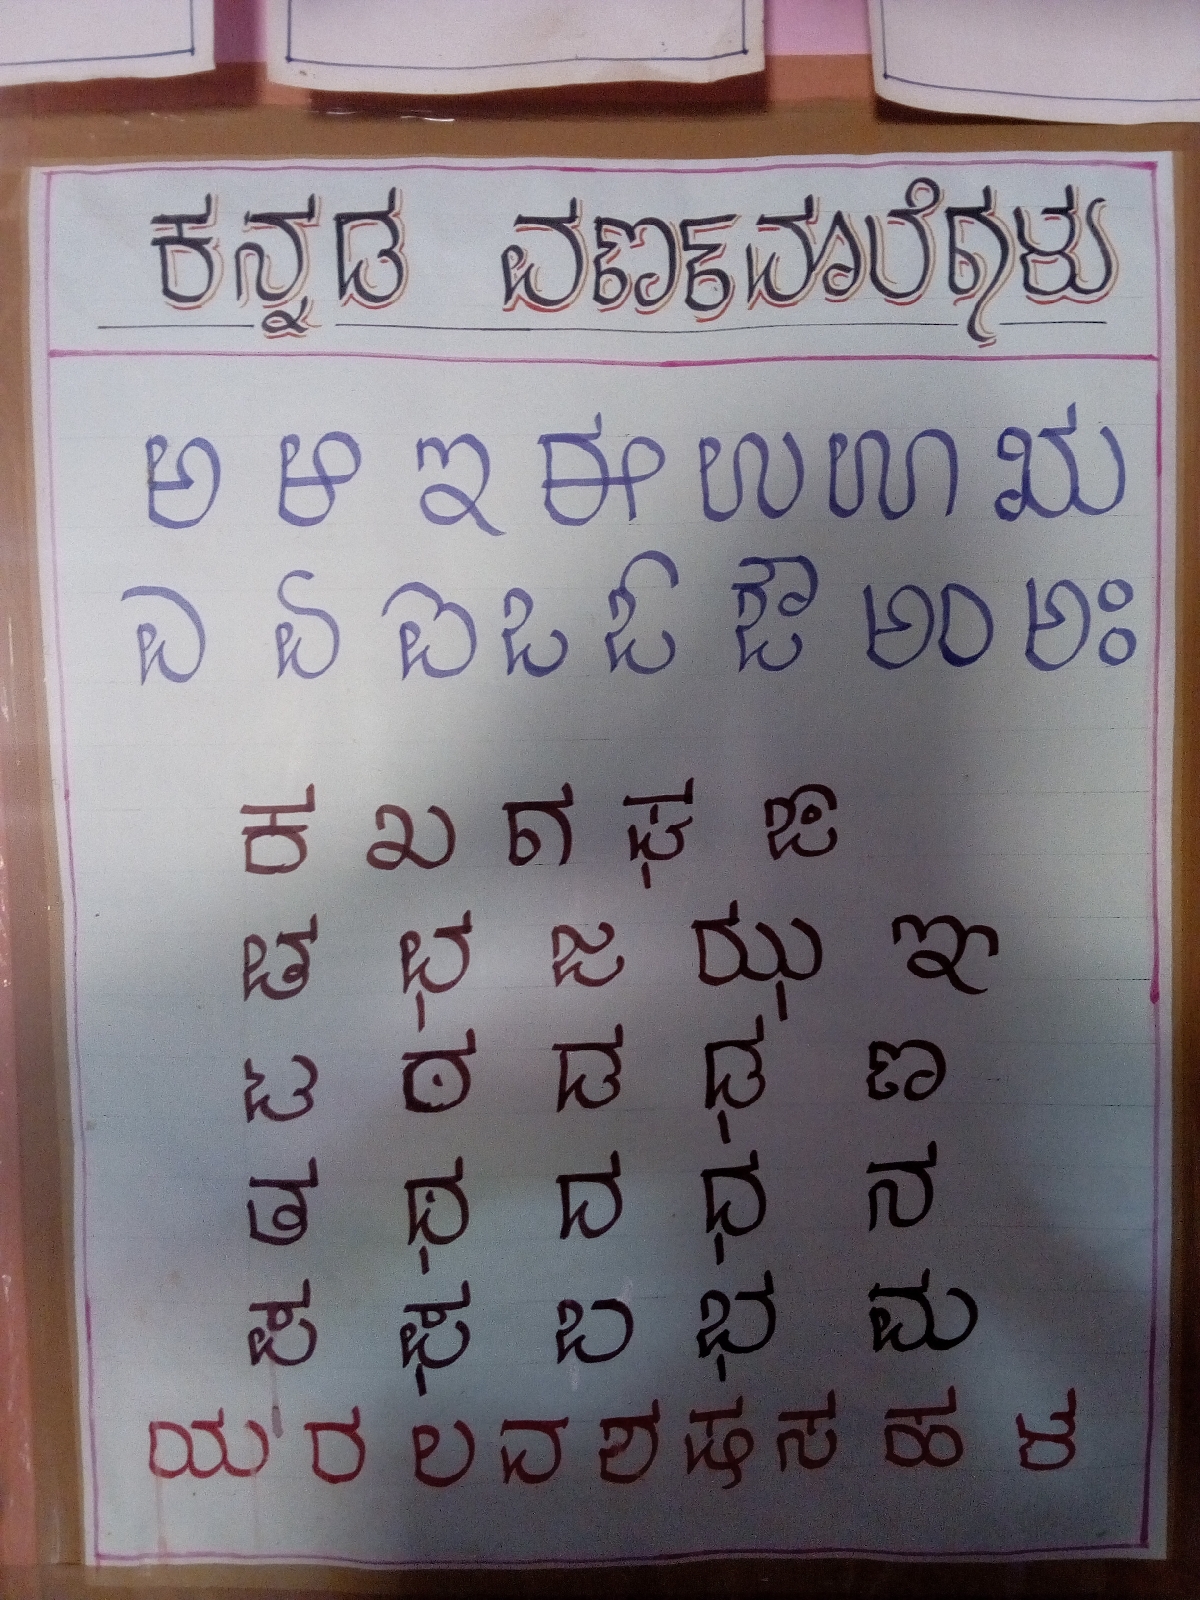 ಕನ್ನಡ ವರ್ಣಮಾಲೆಗಳು
ಅ ಆ ಇ ಈ ಉ ಊ ಋ
ಎ ಏ ಐ ಒ ಓ ಔ ಅಂ ಅಃ
ಕ ಖ ಗ ಘ ಙ
ಚ ಛ ಜ ಝ ಞ
ಟ ಠ ಡ ಢ ಣ
ತ ಥ ದ ಧ ನ
ಪ ಫ ಬ ಭ ಮ
ಯ ರ ಲ ವ ಶ ಷ ಸ ಹ ಳ